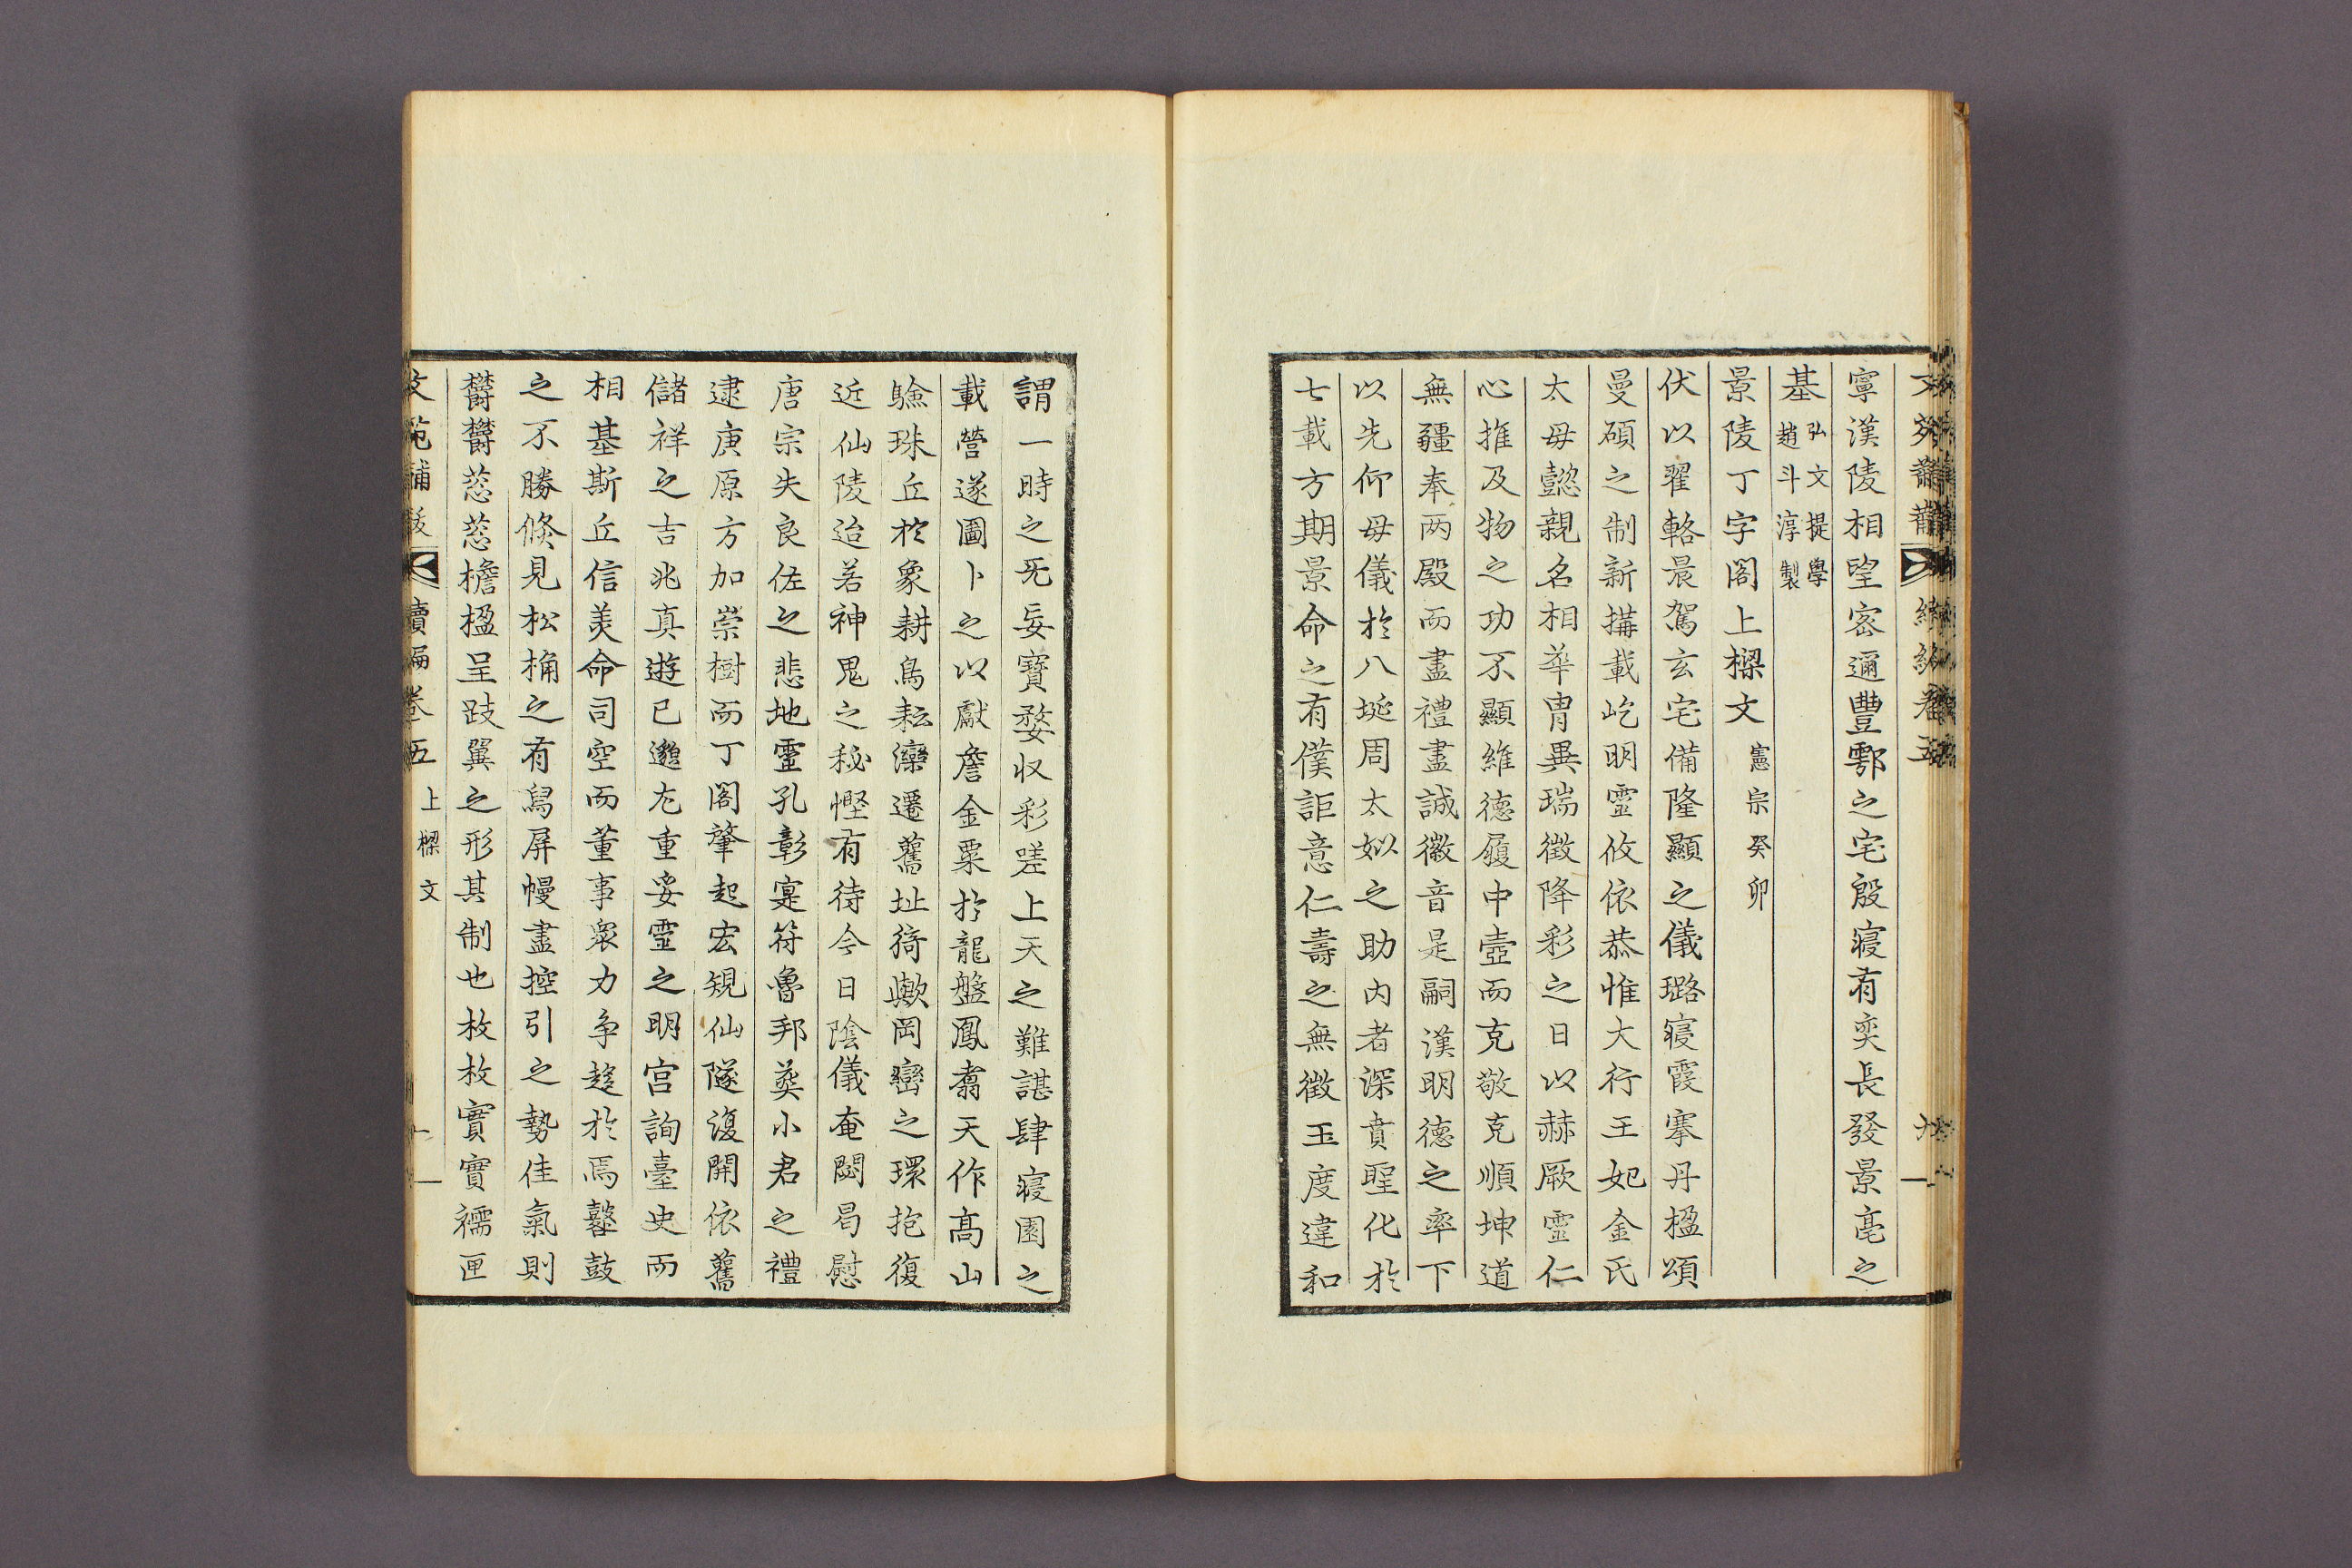 寧漢陵相望密邇豐鄠之宅殷寢有奕長發景亳之
基弘文提學
趙斗淳製
景陵丁字閣上樑文憲宗癸卯
伏以翟輅晨駕玄宅備隆顯之儀璐寢霞搴丹楹頌
曼碩之制新搆載屹明靈攸依恭惟大行王妃金氏
太母懿親名相華胄異瑞徵降彩之日以赫厥靈仁
心推及物之功不顯維德履中壼而克敬克順坤道
無疆奉兩殿而盡禮盡誠徽音是嗣漢明德之率下
以先仰母儀於八埏周太姒之助內者深賁聖化於
七載方期景命之有僕詎意仁壽之無徵玉度違和
謂一時之旡妄寶婺收彩嗟上天之難諶肆寢園之
載營遂圖卜之以獻詹金粟於龍盤鳳翥天作高山
驗珠丘於象耕鳥耘灤遷舊址猗歟岡巒之環抱復
近仙陵迨若神鬼之秘慳有待今日陰儀奄閟曷慰
唐宗失良佐之悲地靈孔彰寔符魯邦葬小君之禮
逮庚原方加崇樹而丁閣肇起宏䂓仙隧復開依舊
儲祥之吉兆真遊已邈尤重妥靈之明宮詢臺史而
相基斯丘信美命司空而董事衆力爭趍於焉鼛鼓
之不勝倐見松桷之有舄屏幔盡控引之勢佳氣則
欝欝葱葱檐楹呈跂翼之形其制也枚枚實實襦匣
文苑補　續編卷五　上樑文